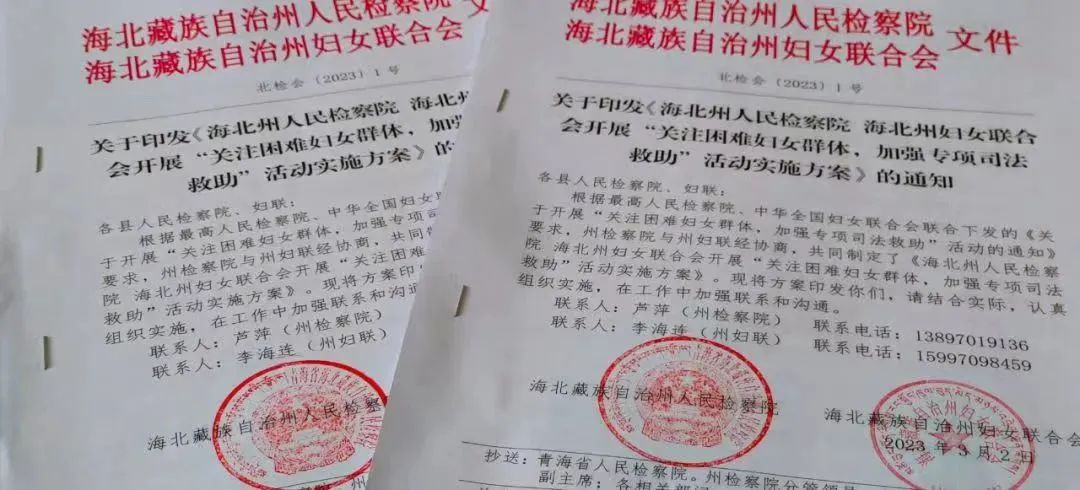 海北藏族自治州人民检察院
海北藏族自治州妇女联合会
北检会〔2023〕1号
关于印发《海北州人民检察院 海北州
会开展“关注困难妇女群体，加强
救助”活动实施方案》的
各县人民检察院、妇联：
根据最高人民检察院、中华全国妇女
于开展“关注困难妇女群体，加强专项司
要求，州检察院与州妇联经协商，共同制
院 海北州妇女联合会开展“关注困难
救助”活动实施方案》。现将方案印
组织实施，在工作中加强联系和沟通
联系人：芦萍（州检察院）
联系人：李海连（州妇联）
海北藏族自治州人民检察
海北藏族自治州人民检察院
海北藏族自治州妇女联合会 文件
北检会〔2023〕1号
关于印发《海北州人民检察院 海北州妇女联合
会开展“关注困难妇女群体，加强专项司法
救助”活动实施方案》的通知
各县人民检察院、妇联：
根据最高人民检察院、中华全国妇女联合会联合下发的《关
于开展“关注困难妇女群体，加强专项司法救助”活动的通知》
要求，州检察院与州妇联经协商，共同制定了《海北州人民检察
院 海北州妇女联合会开展“关注困难妇女群体，加强专项司法
救助”活动实施方案》。现将方案印发你们，请结合实际，认真
组织实施，在工作中加强联系和沟通。
联系人：芦萍（州检察院） 联系电话：13897019136
联系人：李海连（州妇联） 联系电话：15997098459
海北藏族自治州人民检察院 海北藏族自治州妇女联合会
2023年3月2日
抄送：青海省人民检察院。州检察院分管领导
副主席；各相关部门